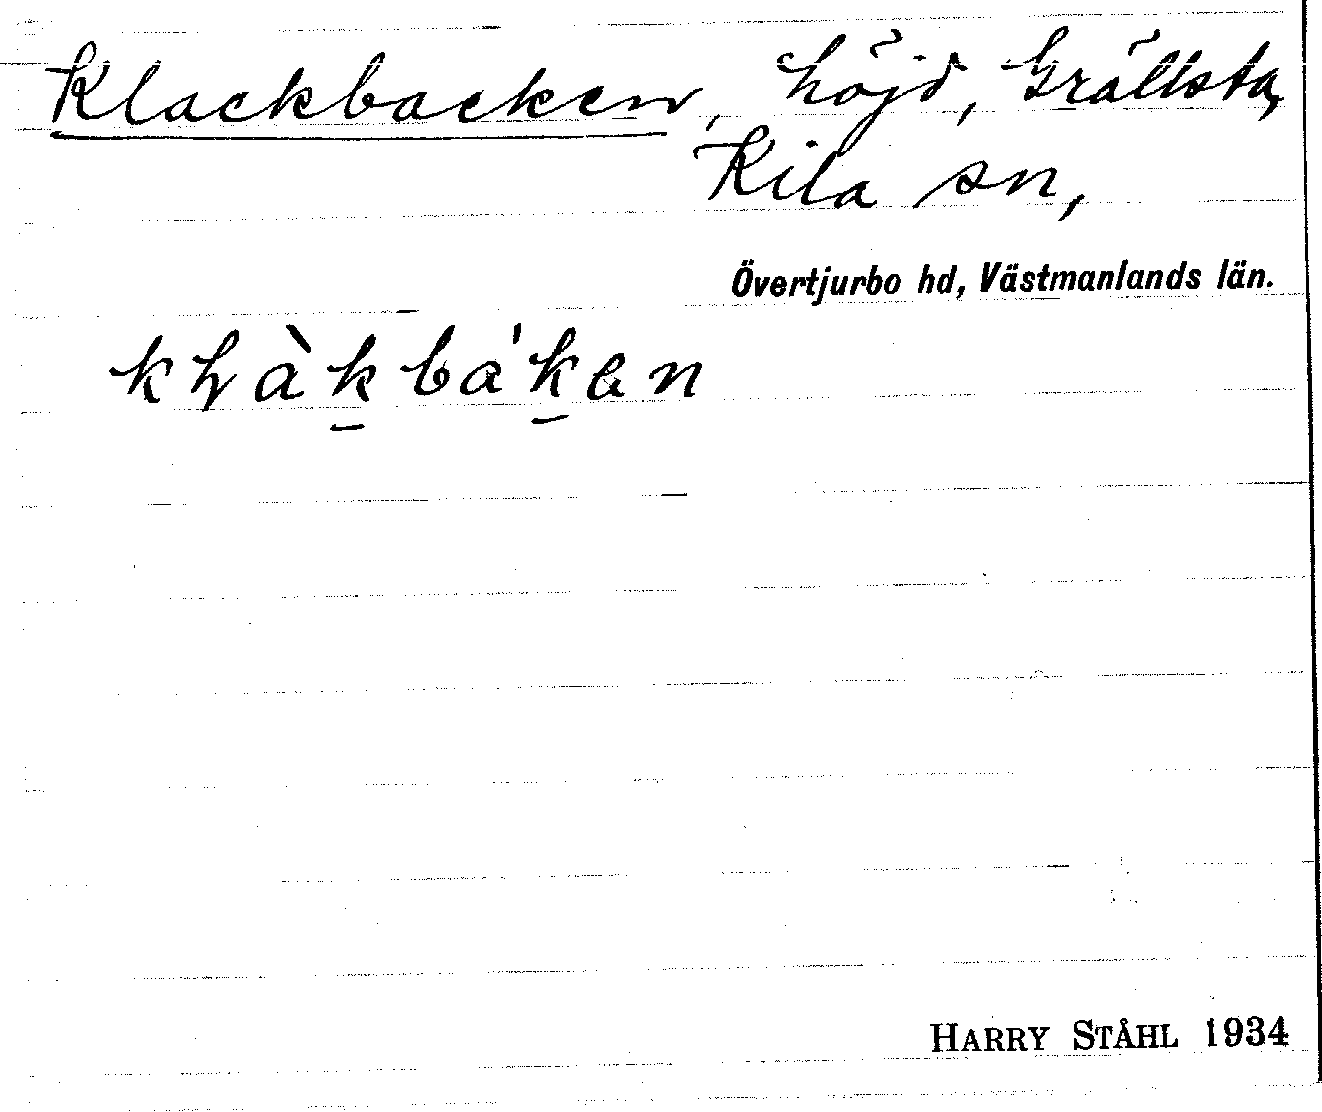 Klackbacken, höjd, Grällsta,
Kila sn,
Övertjurbo hd, Västmanlands län.
HARRY STÅHL 1934